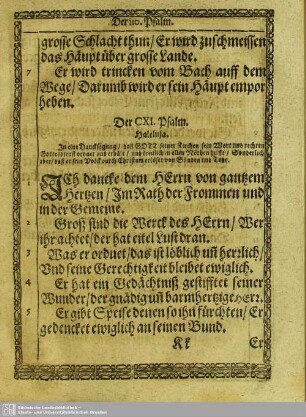 Der 110. Psalm.
grosse Schlacht thun/ Er wird zuschmeissen
das Häupt über grosse Lande.
7 Er wird trincken vom Bach auff dem
Wege/ Darumb wird er sein Häupt empor
heben.
Der CXI. Psalm.
Haleluja.
In eine Dancksagung/ daß GOTT seiner Kirchen sein Wort und rechten
Gottesdienst ordnet und erhält/ und
daß er sein Volck durch Christum erlöset von Sünden und Tode.
ICh dancke dem HErrn von gantzem
Hertzen/ Im Rath der Frommen und
in der Gemeine.
2 Groß sind die Werck des HErrn/ Wer
ihr achtet/ der hat eitel Lust dran.
3 Was er ordnet/ das ist löblich uñ herrlich/
Und seine Gerechtigkeit bleibet ewiglich.
4 Er hat ein Gedächtniß gestifftet seiner
Wunder/ der gnädig uñ barmhertzige HErr.
5 Er gibt Speise denen so ihn fürchten/ Er
gedencket ewiglich an seinen Bund.
Kk Er